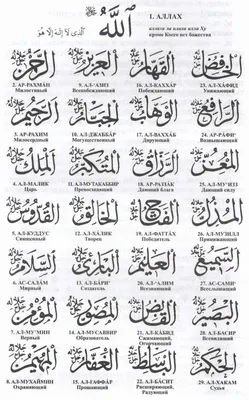 اللَّهُ
الَّذِي لَا إِلَهَ إِلَّا هُوَ
1. АЛЛАХ
аллази ла илаха илла Ху
кроме Коего нет божества
الرحمن العزيز القهار الخافض
2. АР-РАХМАН 9. АЛ-'АЗИЗ 16. АЛ-КАХХАР 23. АЛ-ХАФИД
Милостивый Всепобеждающий Господствующий Унижающий
الرحيم الجبار الوهاب الرافع
3. АР-РАХИМ 10. АЛ-ДЖАББАР 17. АЛ-ВАХХАБ 24. АР-РАФИ'
Милосердный Могущественный Дарующий Возвышающий
الملك المتكبر الرزاق المعز
4. АЛ-МАЛИК 11. АЛ-МУТАКАББИР 18. АР-РАЗЗАК 25. АЛ-МУ'ИЗЗ
Царь Превосходящий Дающий блага Дающий силу
القدوس الخالق الفتاح المذل
5. АЛ-КУДДУС 12. АЛ-ХАЛИК 19. АЛ-ФАТТАХ 26. АЛ-МУЗИЛЛ
Священный Творец Победитель Принижающий
السلام البارئ العليم السميع
6. АС-САЛАМ 13. АЛ-БАРИ' 20. АЛ-'АЛИМ 27. АС-САМИ'
Мирный Создатель Всезнающий Всеслышащий
المؤمن المصور القابض البصير
7. АЛ-МУ'МИН 14. АЛ-МУСАВВИР 21. АЛ-КАБИД 28. АЛ-БАСИР
Верный Образователь Сжимающий, Всевидящий
المهيمن الغفار الباسط الحكم
8. АЛ-МУХАЙМИН 15. АЛ-ГАФФАР 22. АЛ-БАСИТ 29. АЛ-ХАКАМ
Охраняющий Прощающий Расширяющий, Судья
Радующий